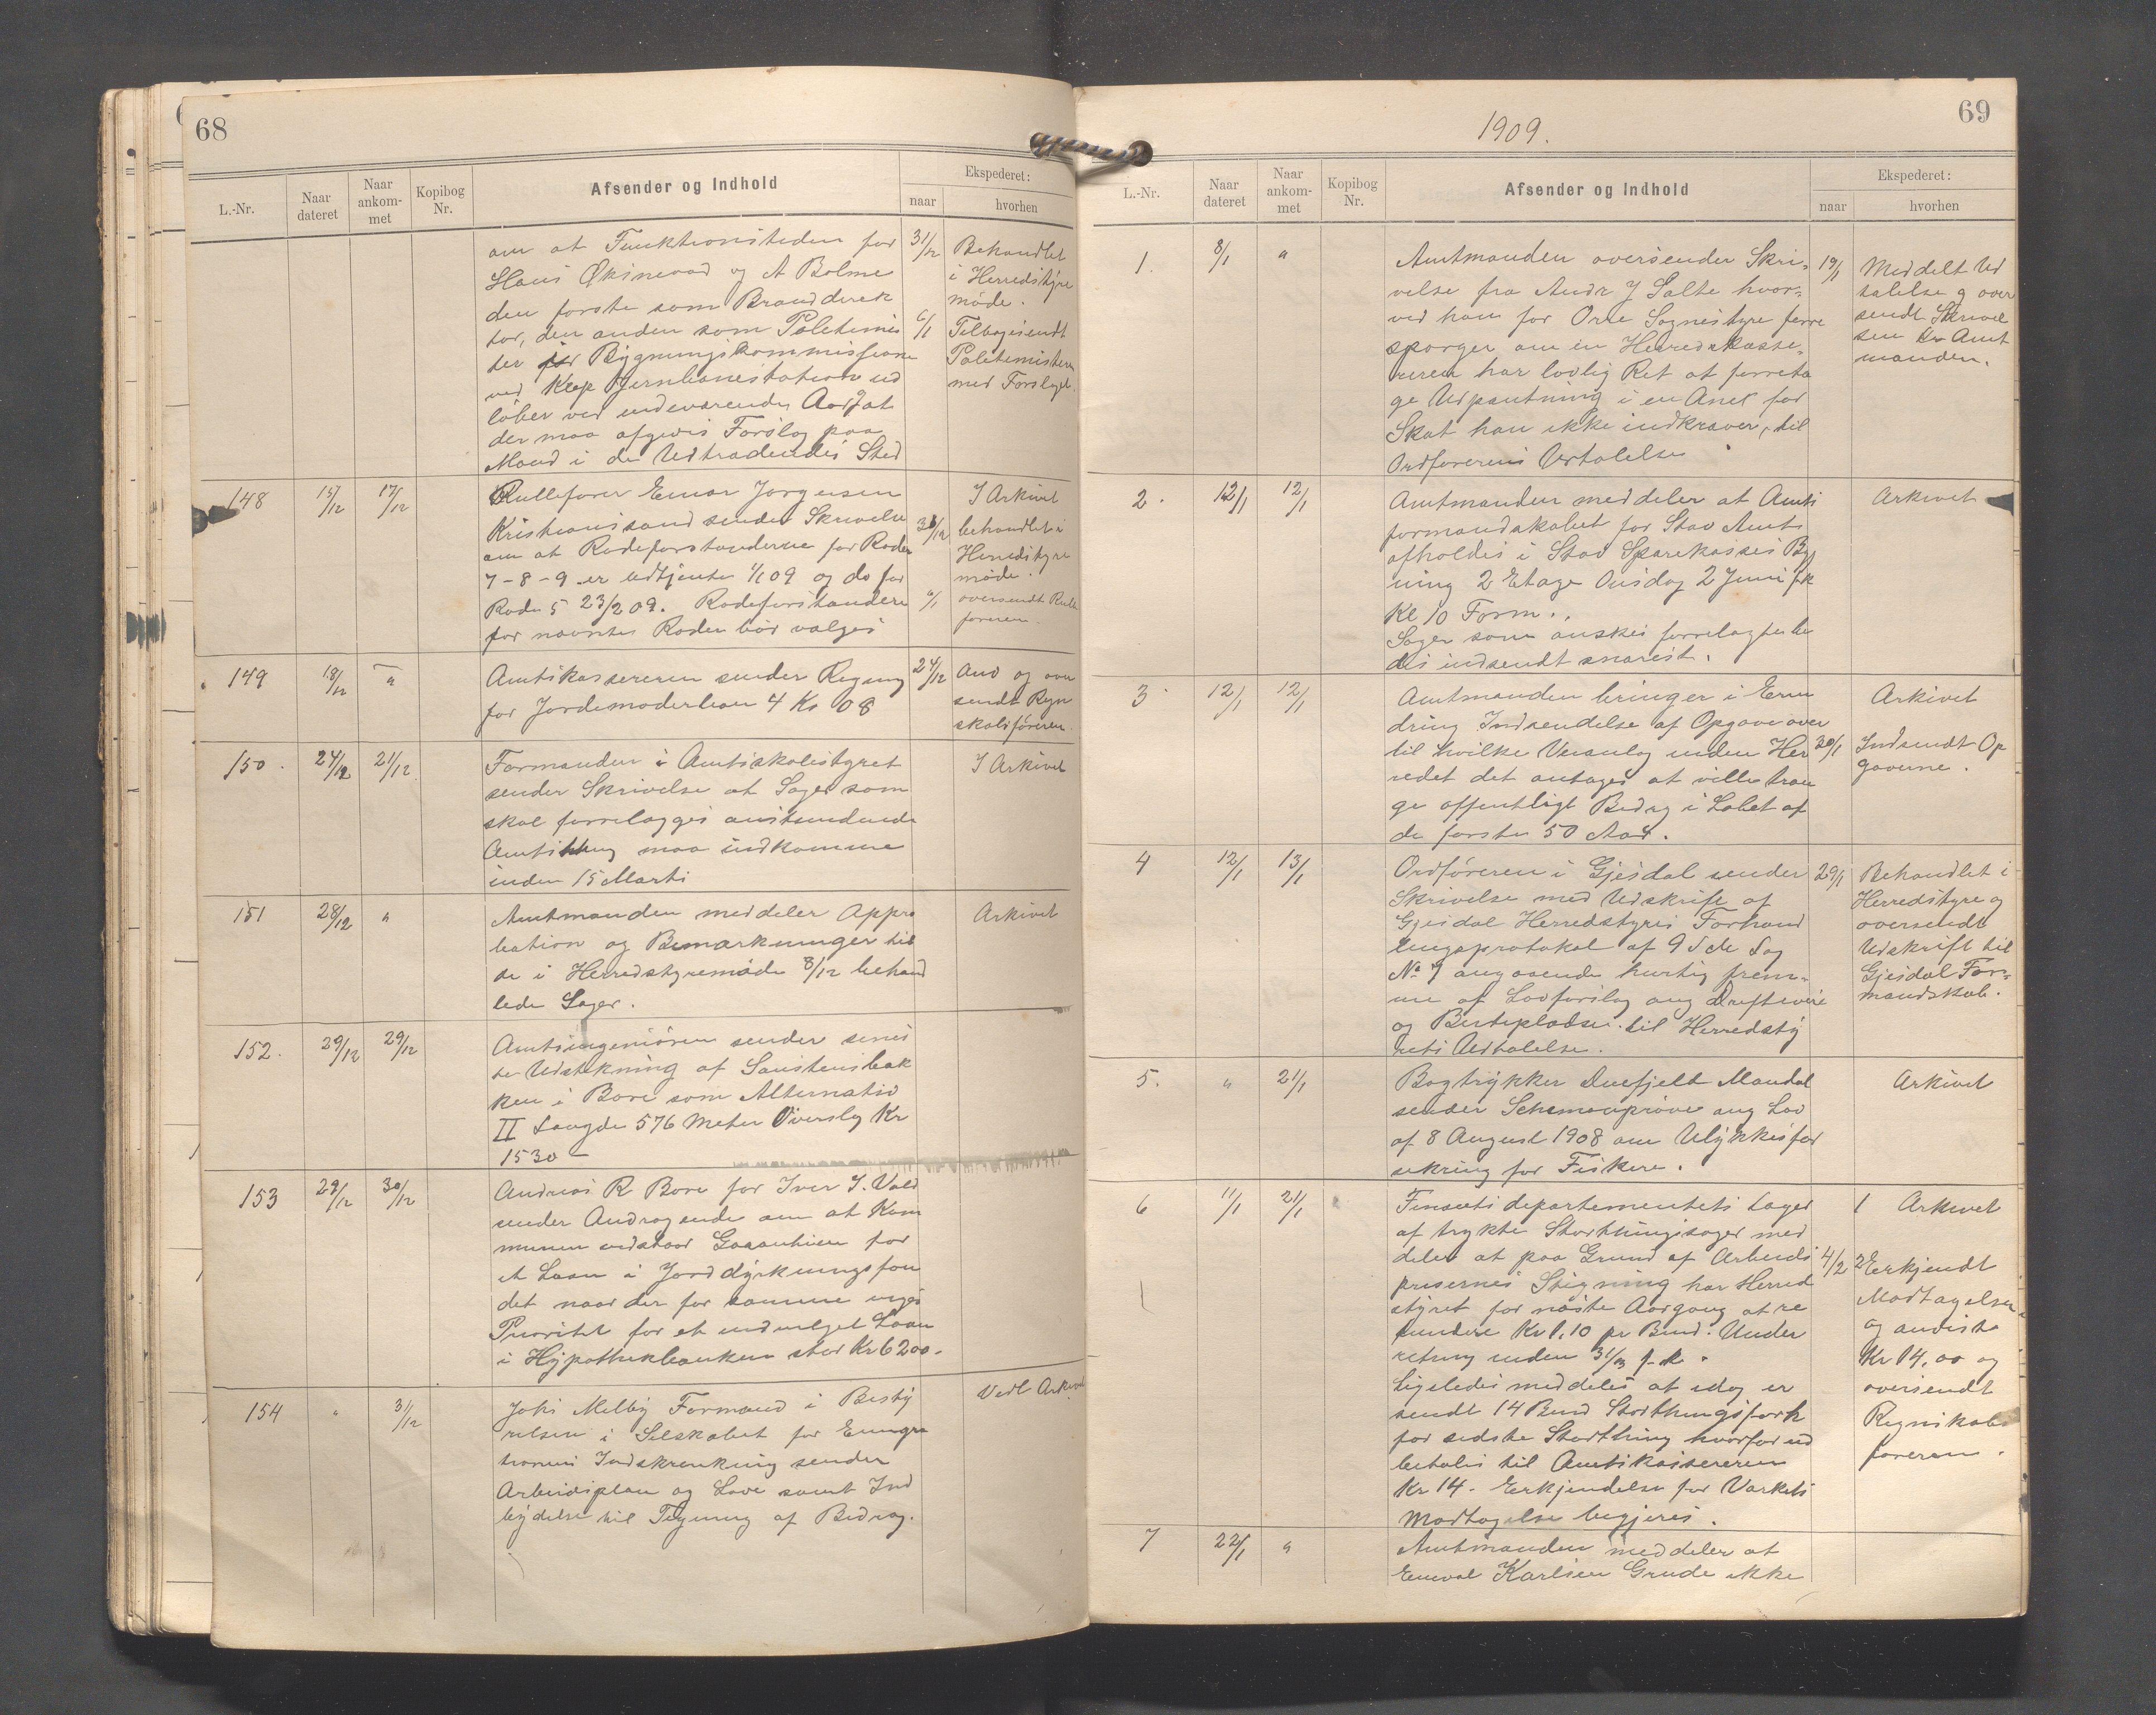 68
L.-Nr.
Naar dateret
Naar ankommet
Kopibog Nr.
Afsender og Indhold
Ekspederet:
naar
hvorhen
om at Funktionstiden for
Hans Øksnevad og A Bolme
den første som Branddirek
tør, den anden som Politimes
ter for Bygningskommissionen
ved Klep Jernbanestation ud
løber ved indeværende Aar, at
der maa afgives Forslag paa
Mænd i de Udtrædendes Sted
31/12 Behandlet
i Herredstyre
møde.
6/1 Tilbagesendt
Politimesteren
med Forslaget.
148 15/12 17/12
Rullefører Einar Jørgensen
Kristiansand sender Skrivelse
om at Rodeforstanderne for Roder
7-8-9 er udtjente 1/1 09 og do for
Rode 5 23/2 09. Rodeforstandere
for nævnte Roder bør vælges
I Arkivet
31/12 behandlet i
Herredstyre
møde.
6/1 oversendt Rulle
føreren.
149 18/12 "
Amtskassereren sender Regning
for Jordemoderløn 4 Kr 08
24/12 Anv og over
sendt Regn
skabsføreren.
150. 24/12 21/12
Formanden i Amtsskolestyret
sender Skrivelse at Sager som
skal forrelægges anstundende
Amtsting maa indkomme
inden 15 Marts
I Arkivet
151 28/12 "
Amtmanden meddeler Appro
bation og Bemærkninger til
de i Herredstyremøde 8/12 behand
lede Sager.
Arkivet
152. 29/12 29/12
Amtsingeniøren sender senes
te Udstikning af Sanstensbak
ken i Bore som Alternativ
II Længde 576 Meter Overslag Kr
1530 –
153 29/12 30/12
Andreas R Bore for Iver J. Vold
sender Andragende om at Kom
munen vedstaar Garantien for
et Laan i Jorddyrkningsfon
det naar der for samme viges
Prioritet for et udvalget Laan
i Hypothekbanken stor Kr 6200.
154 " 31/12
Johs Melby Formand i Besty
relsen i Selskabet for Emigra
tionens Indskrenkning sender
Arbeidsplan og Love samt Ind
bydelse til Tegning af Bidrag.
Vedl Arkivet
69
1909.
L.-Nr.
Naar dateret
Naar ankommet
Kopibog Nr.
Afsender og Indhold
Ekspederet:
naar
hvorhen
1. 8/1 "
Amtmanden oversender Skri-
velse fra Andr J Salte hvor-
ved han for Orre Sognestyre forre
spørger om en Herredskasse-
reren har lovlig Ret at foreta
ge Udpantning i en Anet for
Skat han ikke indkræver, til
Ordførerens Udtalelse
19/1 Meddelt Ud
talelse og over
sendt Skrivel
sen Hr Amt
manden.
2. 12/1 12/1
Amtmanden meddeler at Amts
formandskabet for Stav Amt
afholdes i Stav Sparekasses Byg
ning 2 Etage Onsdag 2 Juni f.k
Kl 10 Form.
Sager som ønskes forrelagte be
des indsendt snarest.
Arkivet
3 12/1 12/1
Amtmanden bringer i Erin
dring Indsendelse af Opgave over
til hvilke Veianlæg inden Her
redet det antages at ville træn
ge offentligt Bidrag i Løbet af
de første 50 Aar.
Arkivet
30/1 Indsendt Op
gaverne.
4 12/1 13/1
Ordføreren i Gjesdal sender
Skrivelse med Udskrift af
Gjesdal Herredstyres Forhand
lingsprotokol af 9 d M Sag
No 7 angaaende hurtig frem-
me af Lovforslag ang Driftsveie
og Beitepladse til Herredsty
rets Udtalelse.
29/1 Behandlet i
Herredstyre og
oversendt
Udskrift til
Gjesdal For-
mandskab.
5. " 21/1
Bogtrykker Duefjeld Mandal
sender Schemaprøve ang Lov
af 8 August 1908 om Ulykkesfor
sekring for Fiskere.
Arkivet
6 11/1 21/1
Finsdepartementets Lager
af trykte Storthingssager med
deler at paa Grund af Arbeids
prisernes Stigning har Herred
styret for næste Aargang at re
fundere Kr 1,10 pr Bind. Under
retning inden 31/3 f.k.
Ligeledes meddeles at idag er
sendt 14 Bind Storthingsforh
for sidste Storthing hvorfor ud
betales til Amtskassereren
Kr 14. Erkjendelse for Værkets
Modtagelse begjeres.
1 Arkivet
4/2 2 Erkjendt
Modtagelsen
og anviste
Kr 14,00 og
oversendt
Regnskabs
føreren.
7 22/1 "
Amtmanden meddeler at
Karlsen Grude ikke